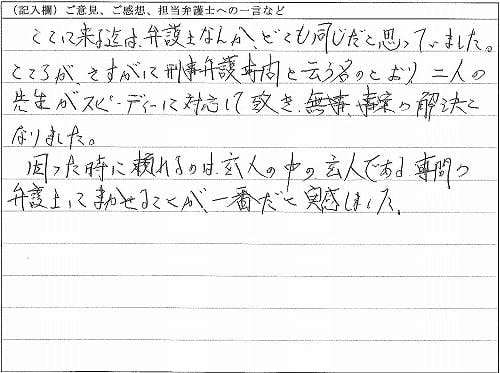 (記入欄)ご意見、ご感想、担当弁護士への一言など
ここに来る迄は、弁護士なんか、どこも同じだと思っていました。
ところが、さすがに刑事弁護専門と云う名のとおり、二人の
先生がスピーディーに対応して致き、無事、事案の解決と
なりました。
困った時に頼れるのは、玄人の中の玄人である専門の
弁護士にまかせることが、一番だと実感しました。